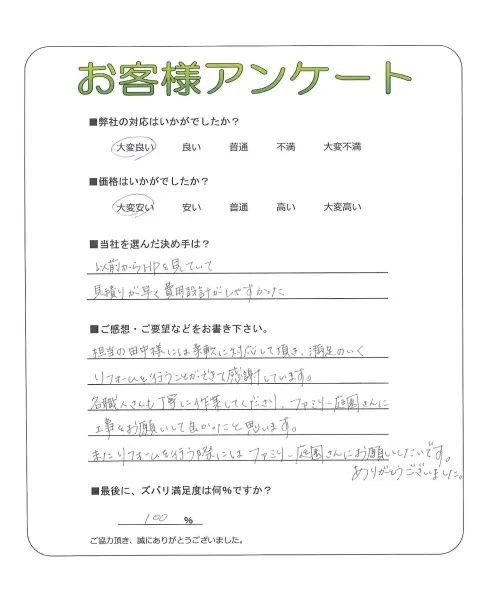 お客様アンケート
■弊社の対応はいかがでしたか？
大変良い 良い 普通 不満 大変不満
■価格はいかがでしたか？
大変安い 安い 普通 高い 大変高い
■当社を選んだ決め手は？
以前からHPを見ていて
見積りが早く費用設計がしやすかった
■ご感想・ご要望などをお書き下さい。
担当の田中様には柔軟に対応して頂き、満足のいく
リフォームを行うことができて感謝しています。
各職人さんも丁寧に作業してくださり、ファミリー庭園さんに
工事をお願いして良かったと思います。
またリフォームを行う際にはファミリー庭園さんにお願いしたいです。
ありがとうございました。
■最後に、ズバリ満足度は何％ですか？
100 ％
ご協力頂き、誠にありがとうございました。